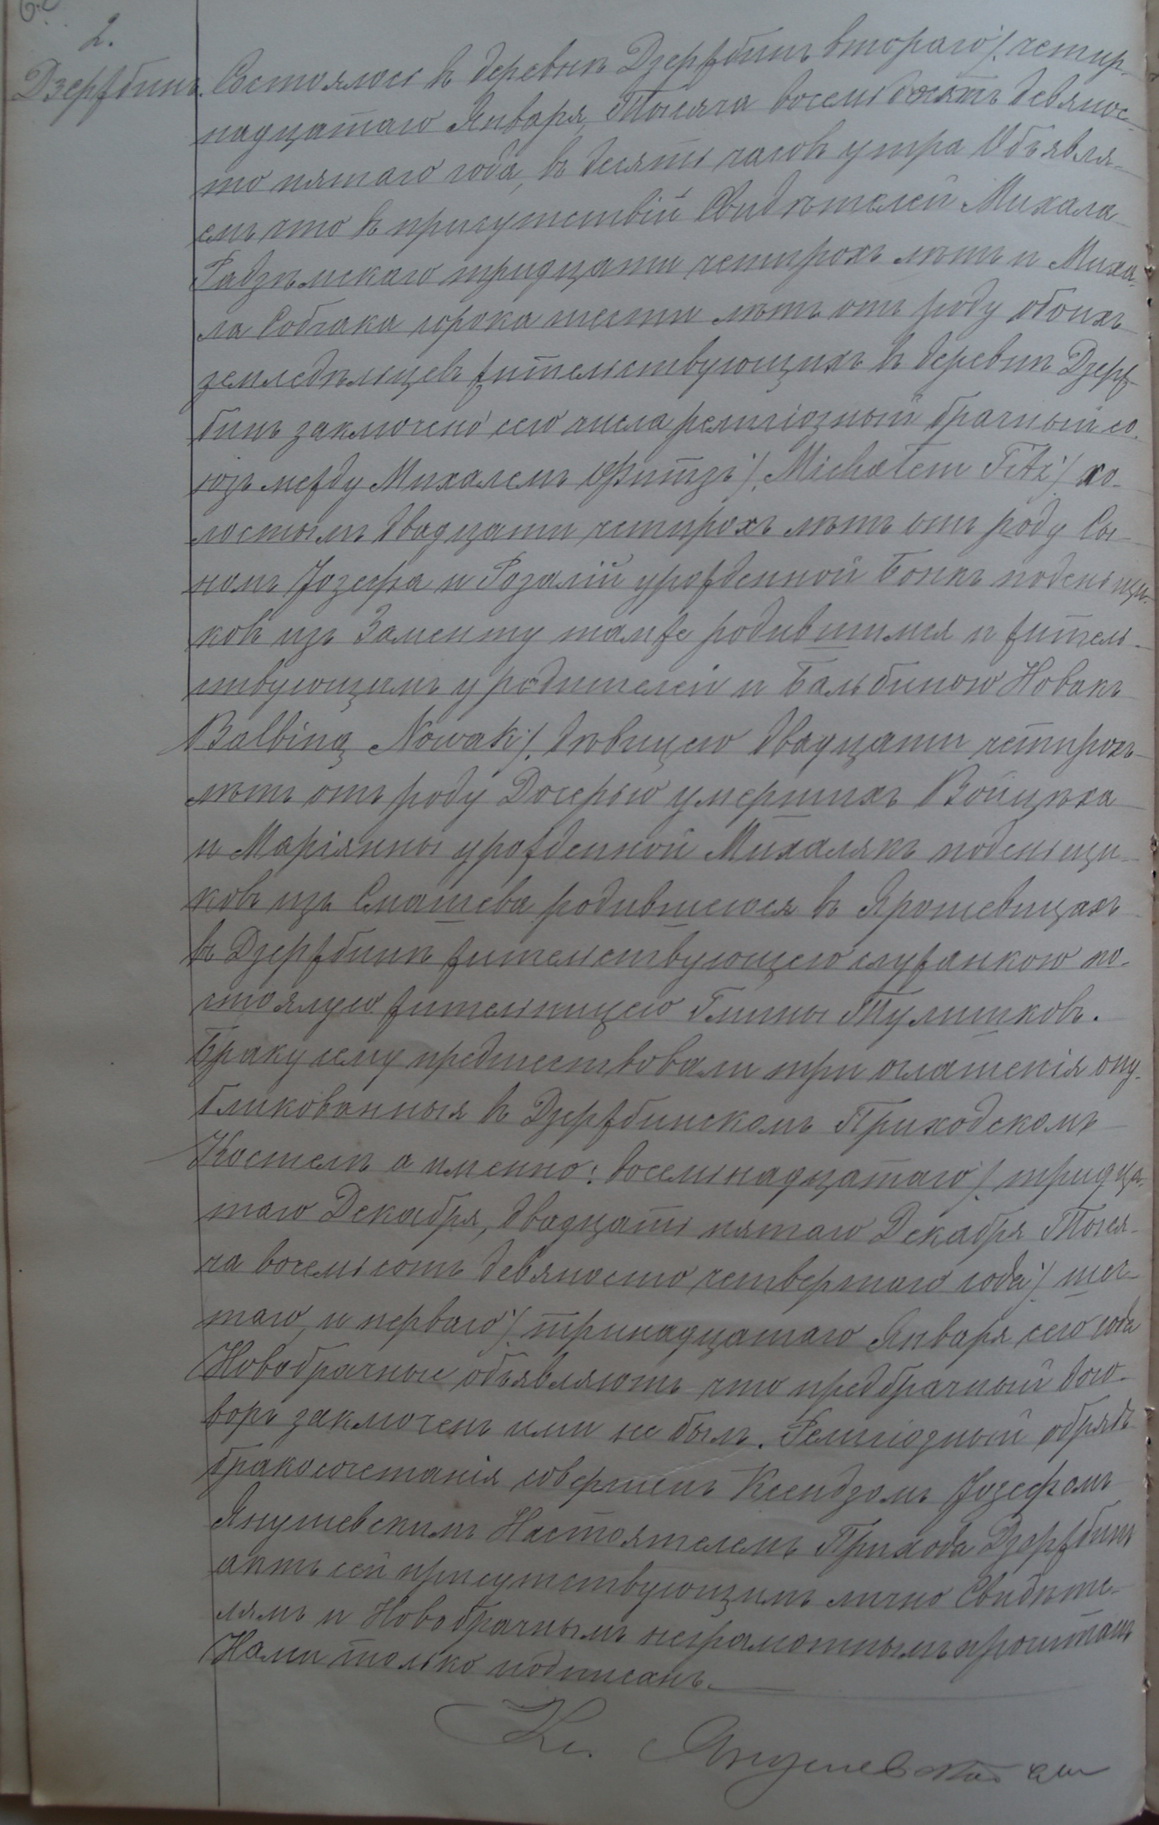 2.
Дзержбинъ. Состоялось въ деревнѣ Дзержбинъ втораго /: четыр-
надцатаго Января, Тысяча восемьсотъ девянос-
то пятаго года, въ десять часовъ утра Объявля-
емъ что въ присутствій Свидѣтелей Михала
Радзѣмскаго тридцати четырохъ лѣтъ и Миха-
ла Собчака сорока шести лѣтъ отъ роду обоихъ
земледѣльцевъ жительствующихъ въ деревнѣ Дзерж-
бинъ заключено сего числа религіозный брачный со-
юзъ между Михалемъ Фитзъ /: Michałem Fitz :/ хо-
лостымъ двадцати четырохъ лѣтъ отъ роду Сы-
номъ Јозефа и Розалій урожденной Бонкъ поденьщи-
ковъ изъ Заменту тамже родившимся и житель-
ствующимъ у родителей и Бальбиною Новакъ
Balbiną Nowak /: дѣвицею двадцати четырохъ
лѣтъ отъ роду Дочерью умершихъ Войцѣха
и Маріянны урожденной Михалякъ поденьщи-
ковъ изъ родившеюся въ Ярошевицахъ
въ Дзержбинѣ жительствующею служанкою по-
стоялую жительницею Гмины Тулишковъ.
Браку сему предшествовали три оглашенія опу-
бликованныя въ Дзержбинскомъ Приходскомъ
Костелѣ а именно: восемьнадцатаго /: тридца-
таго Декабря, двадцать пятаго Декабря Тыся-
ча восемьсотъ девяносто четвертаго года /: шес-
таго, и перваго /: тринадцатаго Января сего года
Новобрачные объявляютъ что предбрачный дого-
воръ заключенъ ими не былъ. Религіозный обрядъ
бракосочетанія совершенъ Ксендзомъ Јозефомъ
Янушевскимъ Настоятелемъ Прихода Дзержбинъ
актъ сей присутствующимъ лично Свидѣте-
лямъ и Новобрачнымъ неграмотнымъ прочитанъ
Нами только подписанъ.
Кс. Янушевскій